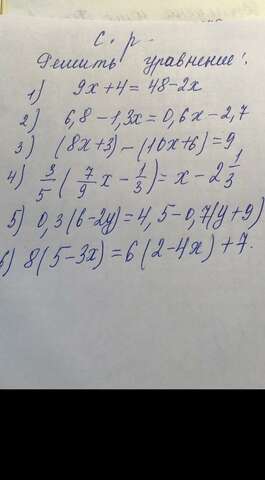 с.р.
Решить уравнение!
1) 9x+4=48-2x
2) 6,8-1,3x=0,6x-2,7
3) (8x+3)-(10x+6)=9
4) 3/5(7/9x-1/3)=x-2 1/3
5) 0,3(6-2y)=4,5-0,7(y+9)
6) 8(5-3x)=6(2-4x)+7.